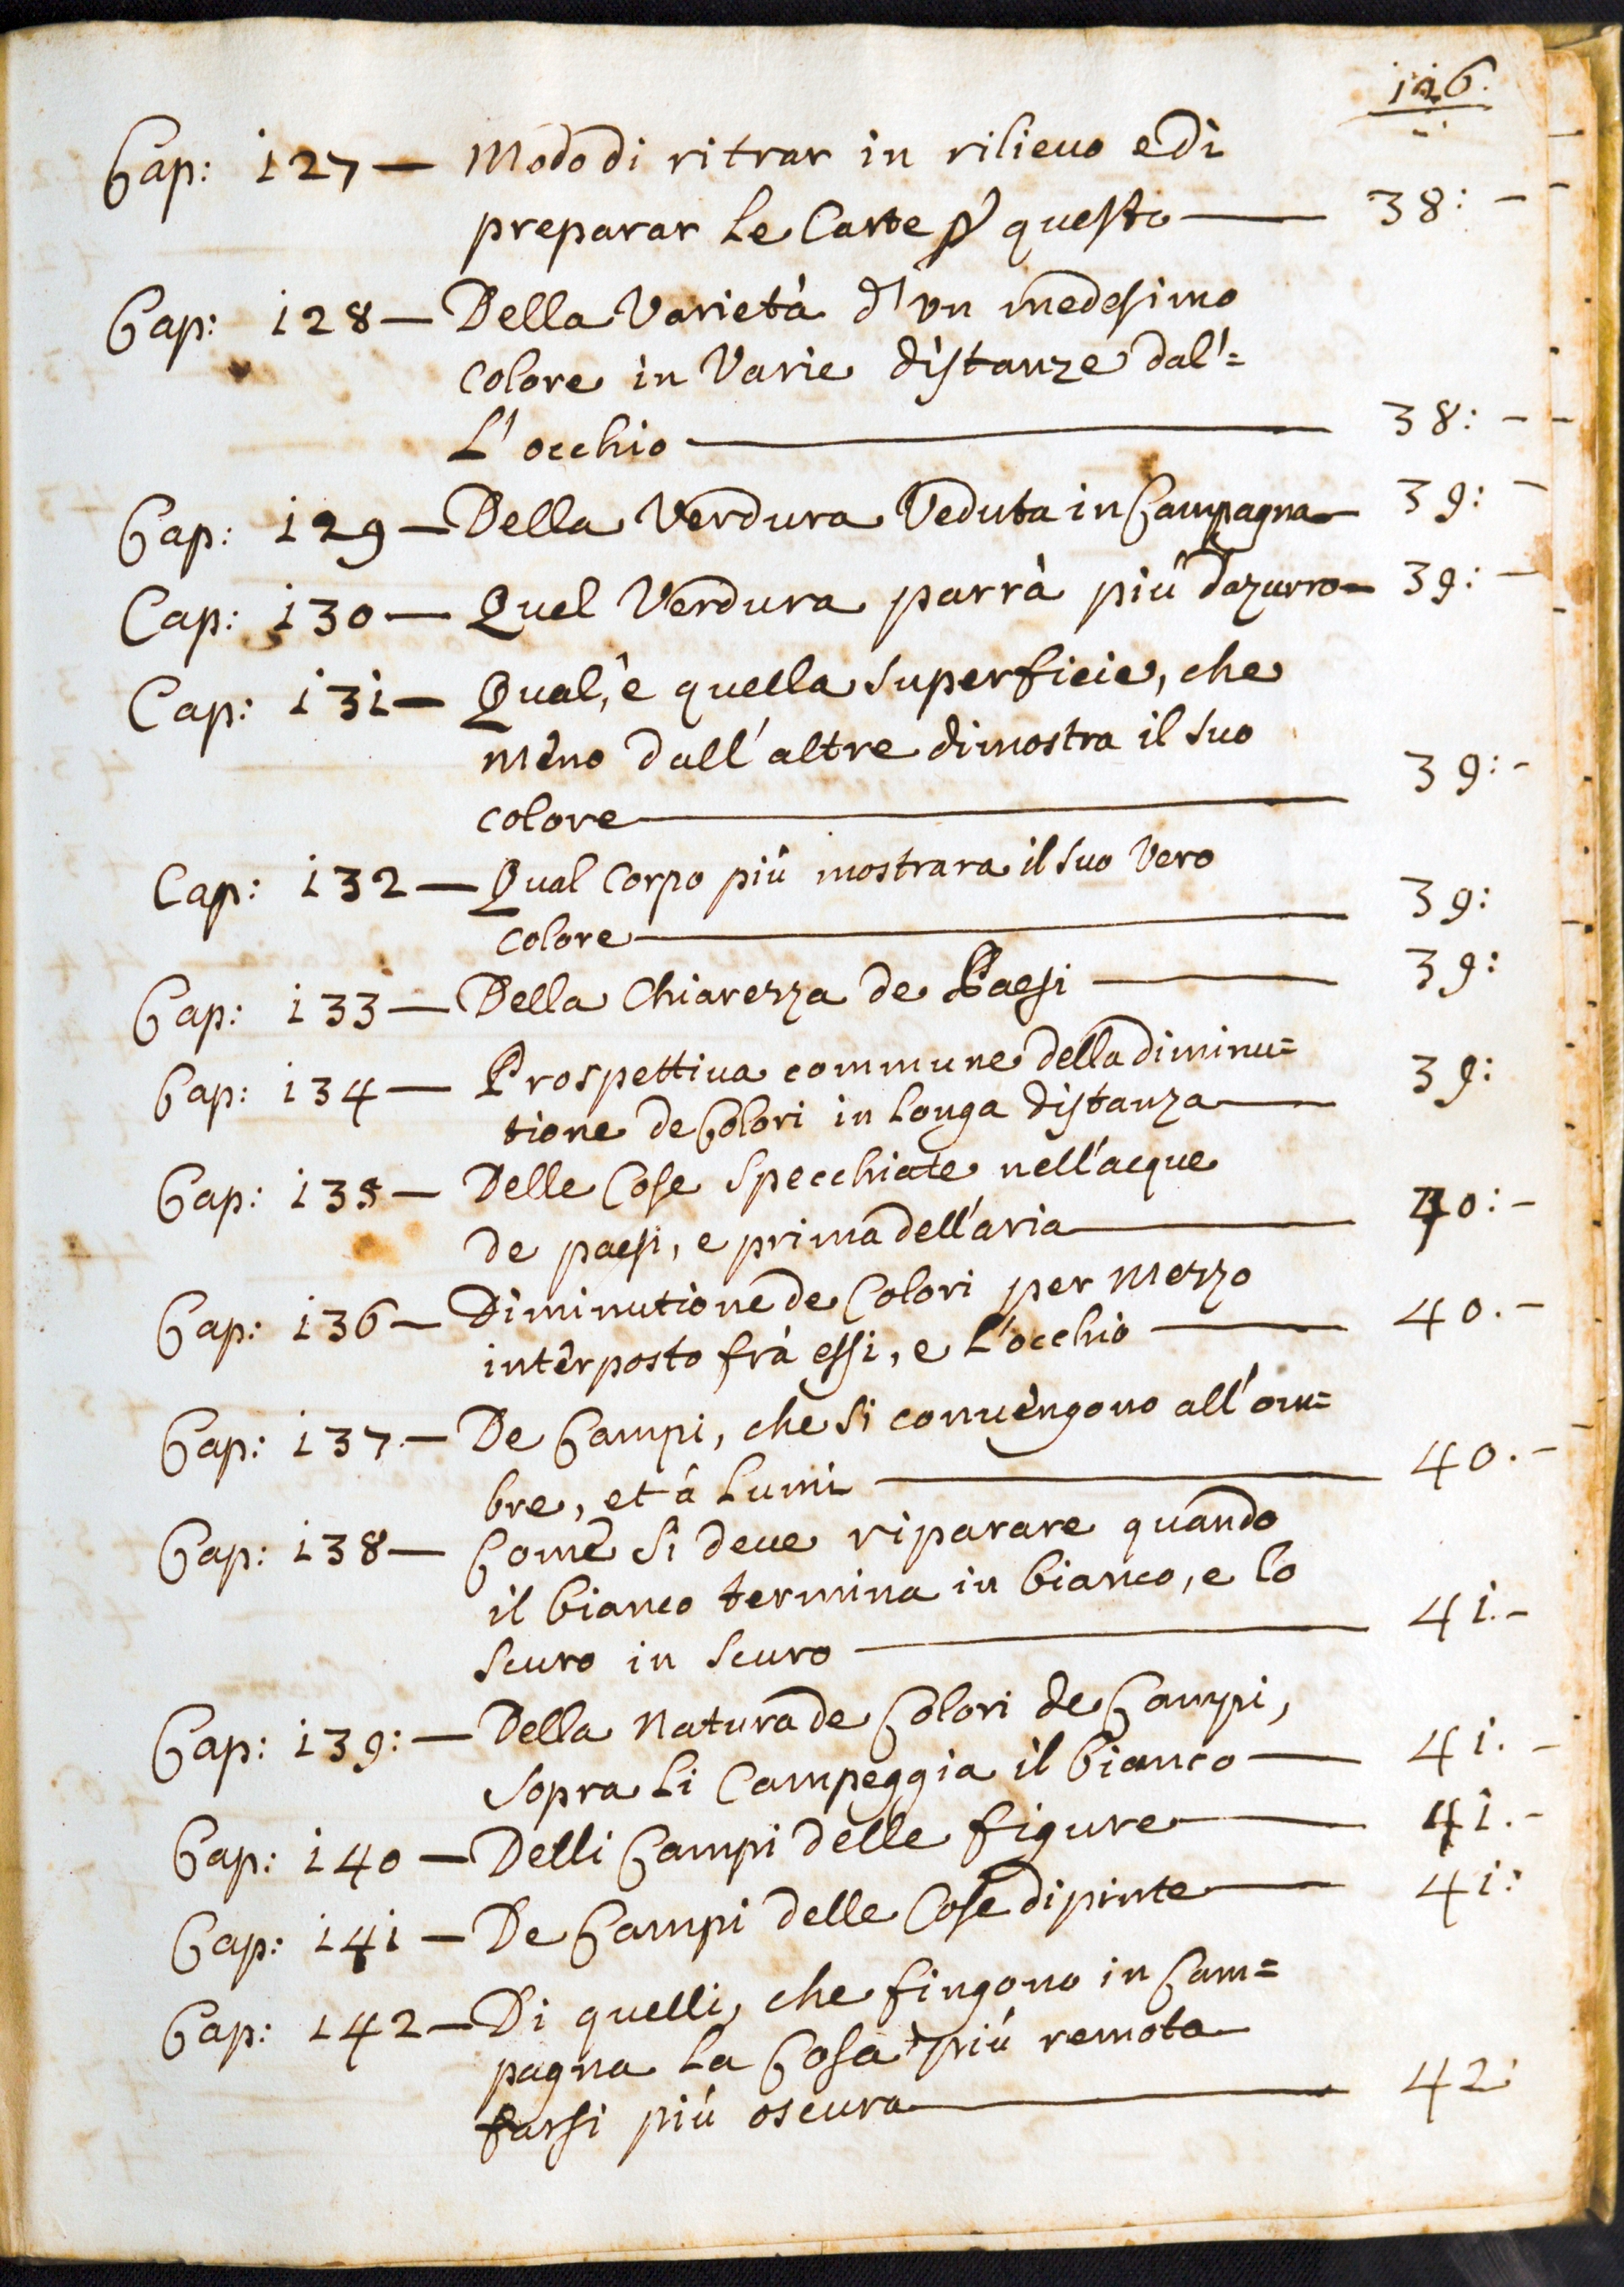 126.
Cap: 127 — Modo di ritrar in rilieuo e di
preparar le Carte ꝑ questo — 38: -
Cap: 128 — Della Varietà d'un medesimo
colore in Varie distanze dal'=
L'occhio — 38: -
Cap: 129 — Della Verdura Veduta in Campagna — 39: -
Cap: 130 — Quel Verdura parrà più d'azurro — 39: -
Cap: 131 — Qual, è quella superficie, che
meno dall'altre dimostra il suo
colore — 39: -
Cap: 132 — Qual Corpo più mostrara il suo Vero
colore — 39:
Cap: 133 — Della Chiarezza de Paesi — 39:
Cap: 134 — Prospettiua commune della diminu=
tione de Colori in longa distanza — 39:
Cap: 135 — Delle Cose Specchiate nell'acque
de paesi, e prima dell'aria — 40: -
Cap: 136 — Diminutione de Colori per mezzo
interposto frà essi, e L'occhio — 40. -
Cap: 137. — De Campi, che si conuengono all'om=
bre, et à lumi — 40. -
Cap: 138 — Come si deue riparare quando
il bianco termina in bianco, e lo
scuro in scuro — 41. -
Cap: 139: — Della Natura de Colori de Campi,
sopra li Campeggia il bianco — 41. -
Cap: 140 — Delli Campi delle figure — 41. -
Cap: 141 — De Campi delle Cose dipinte — 41:
Cap: 142 — Di quelli, che fingono in Cam=
pagna La Cosa più remota
farsi più oscura — 42: